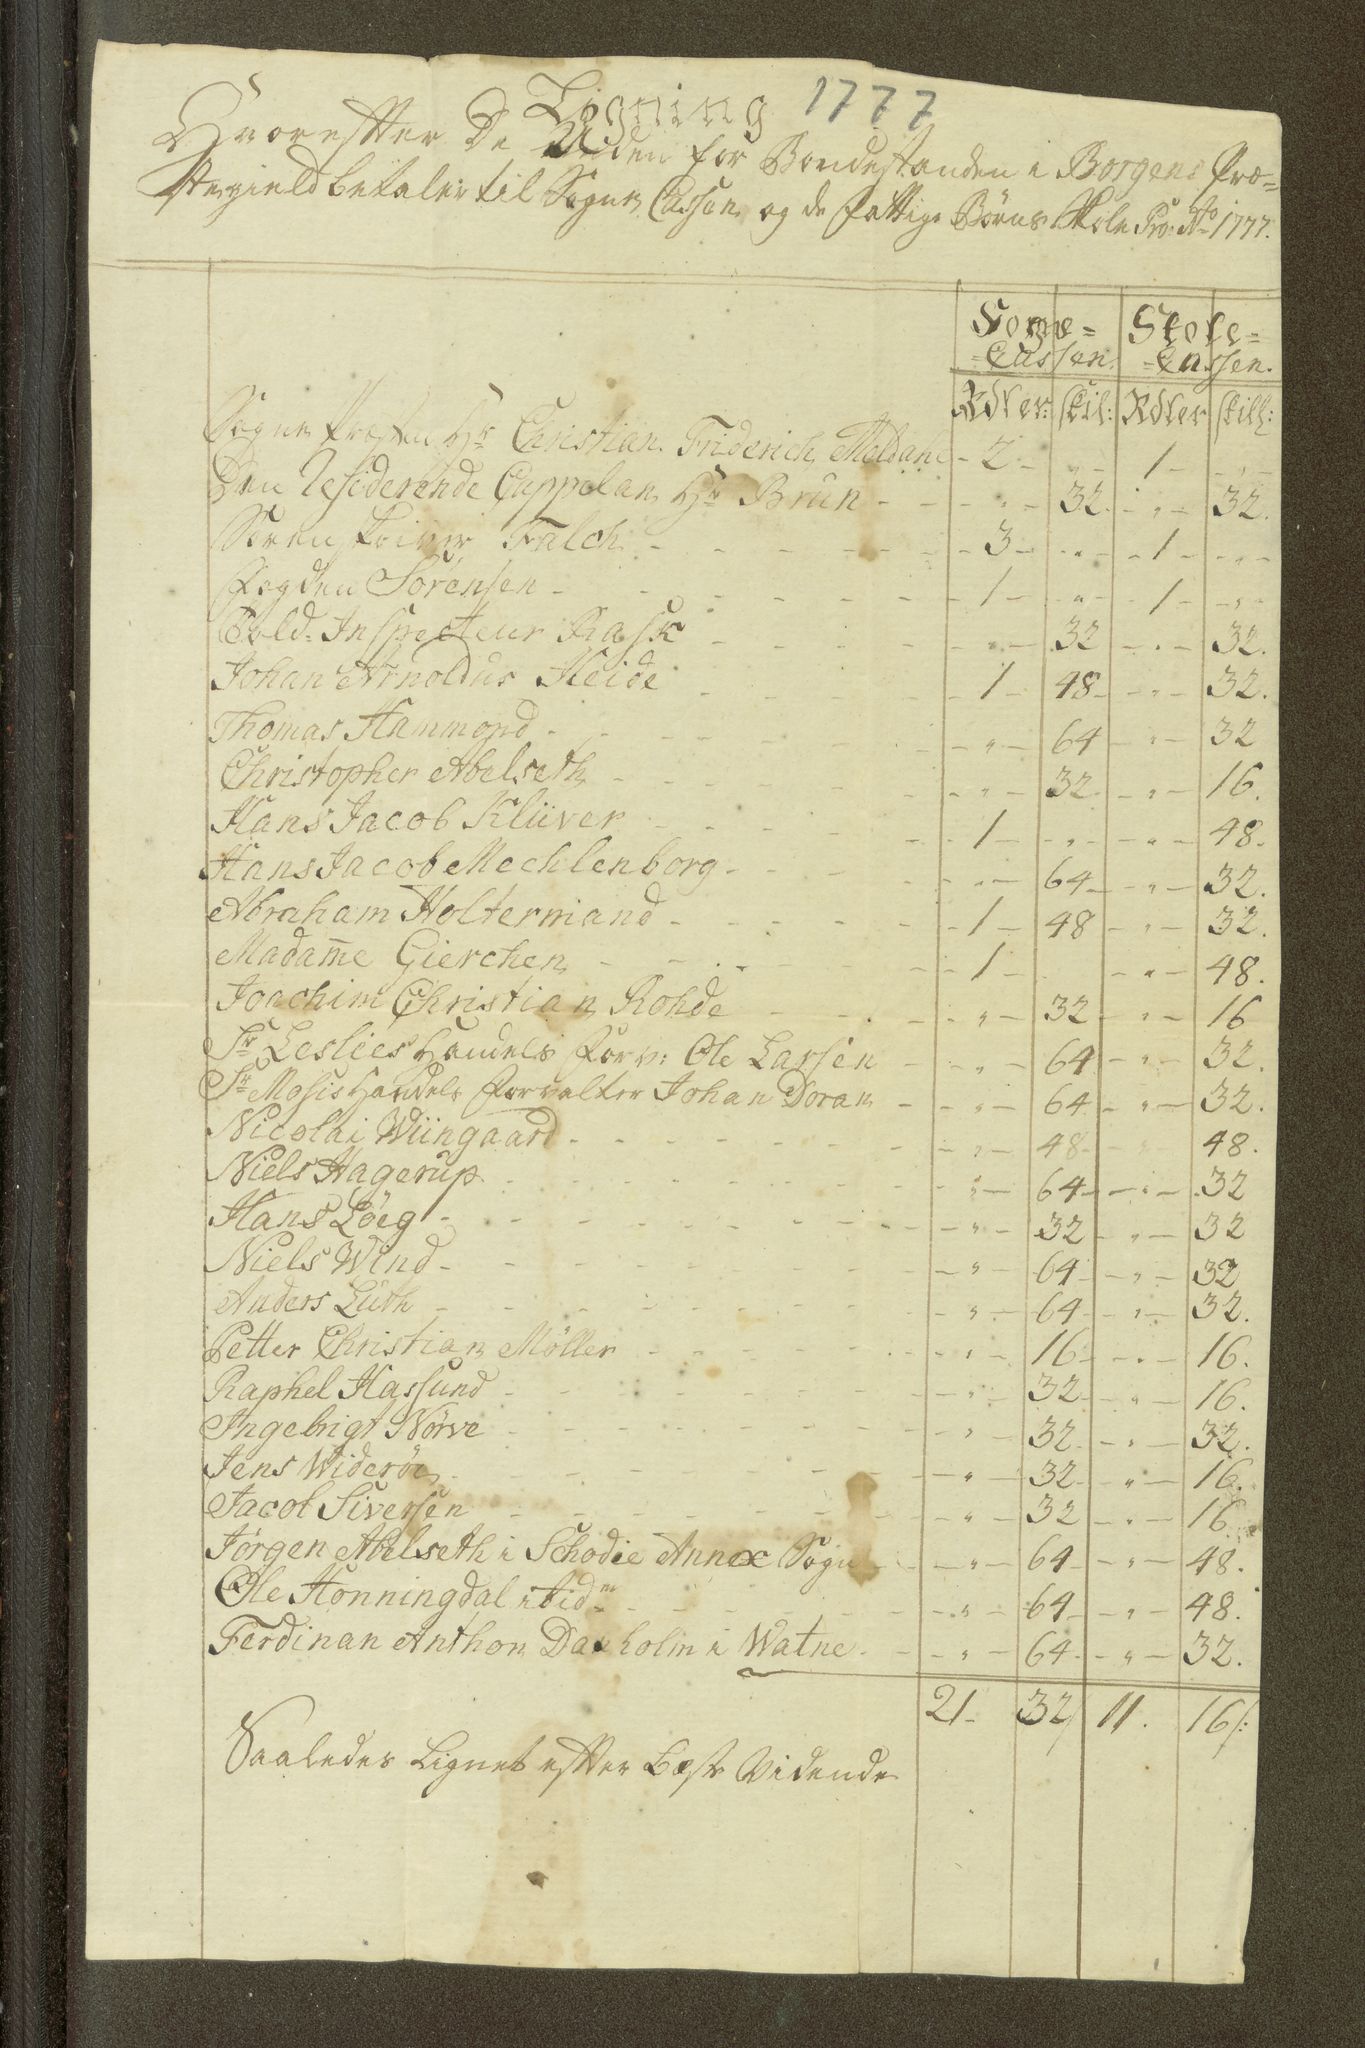 Ligning 1777
Hvorefter De Uden for Bondestanden i Borgens Præ=
stegield betaler til Sogne Cassen og de fattige Børns Skole Pro: Ao 1777.
Sogne= Skole=
=Cassen. =Cassen.
Rdler: skil: Rdler skill:
Sogne Præsten Hr Christian Friderich Meldahl - 2 - „ - 1 - „ -
Den Residerende Cappelan Hr Brun - - - „ - 32. - „ - 32.
Sorenskriver Falch - - - 3 - „ - 1 - „ -
Fogden Sörensen - - - 1 - „ - 1 - „ -
Told-Inspecteur Rask - - „ - 32 - „ - 32.
Johan Arnoldus Heide - - 1 - 48 - „ - 32.
Thomas Hammond - - - „ - 64 - „ - 32
Christopher Abelseth - - - „ - 32 - „ - 16.
Hans Jacob Klüver - - - 1 - „ - „ - 48.
Hans Jacob Mechlenborg - - - „ - 64 - „ - 32.
Abraham Holtermand - - - 1 - 48 - „ - 32.
Madame Gierchen - - - 1 - - „ - 48.
Joachim Christian Rohde - - - „ - 32 - „ - 16
Sr Leslies Handels Forv: Ole Larsen - „ - 64 - „ - 32.
Sr Mosis Handels Forvalter Johan Doran - „ - 64 - „ - 32.
Nicolai Wiingaard - - - „ - 48 - „ - 48.
Niels Hagerup - - - „ - 64 - „ - 32
Hans Löeg - - - „ - 32 - „ - 32
Niels Wind - - - „ - 64 - „ - 32
Anders Lüth - - - „ - 64 - „ - 32.
Petter Christian Möller - - - „ - 16 - „ - 16.
Raphel Hassund - - - „ - 32 - „ - 16.
Ingebrigt Nörve - - - „ - 32 - „ - 32.
Jens Wideröe - - - „ - 32 - „ - 16.
Jacob Siversen - - - „ - 32 - „ - 16
Jörgen Abelseth i Schodie Annex Sogn - „ - 64 - „ - 48.
Ole Honningdal ibidm - - - „ - 64 - „ - 48.
Ferdinan Anthon Daeholin i Watne - - „ - 64 - „ - 32.
21 - 32/ 11. 16/:
Saaledes Lignet efter Bæste Vidende